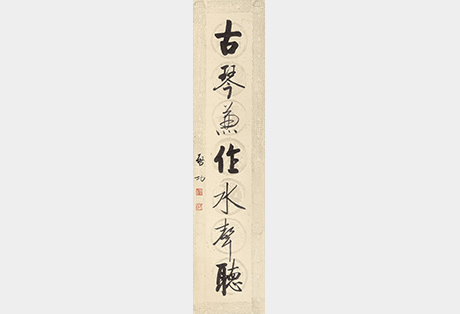 古琴兼作水聲聽
啓功